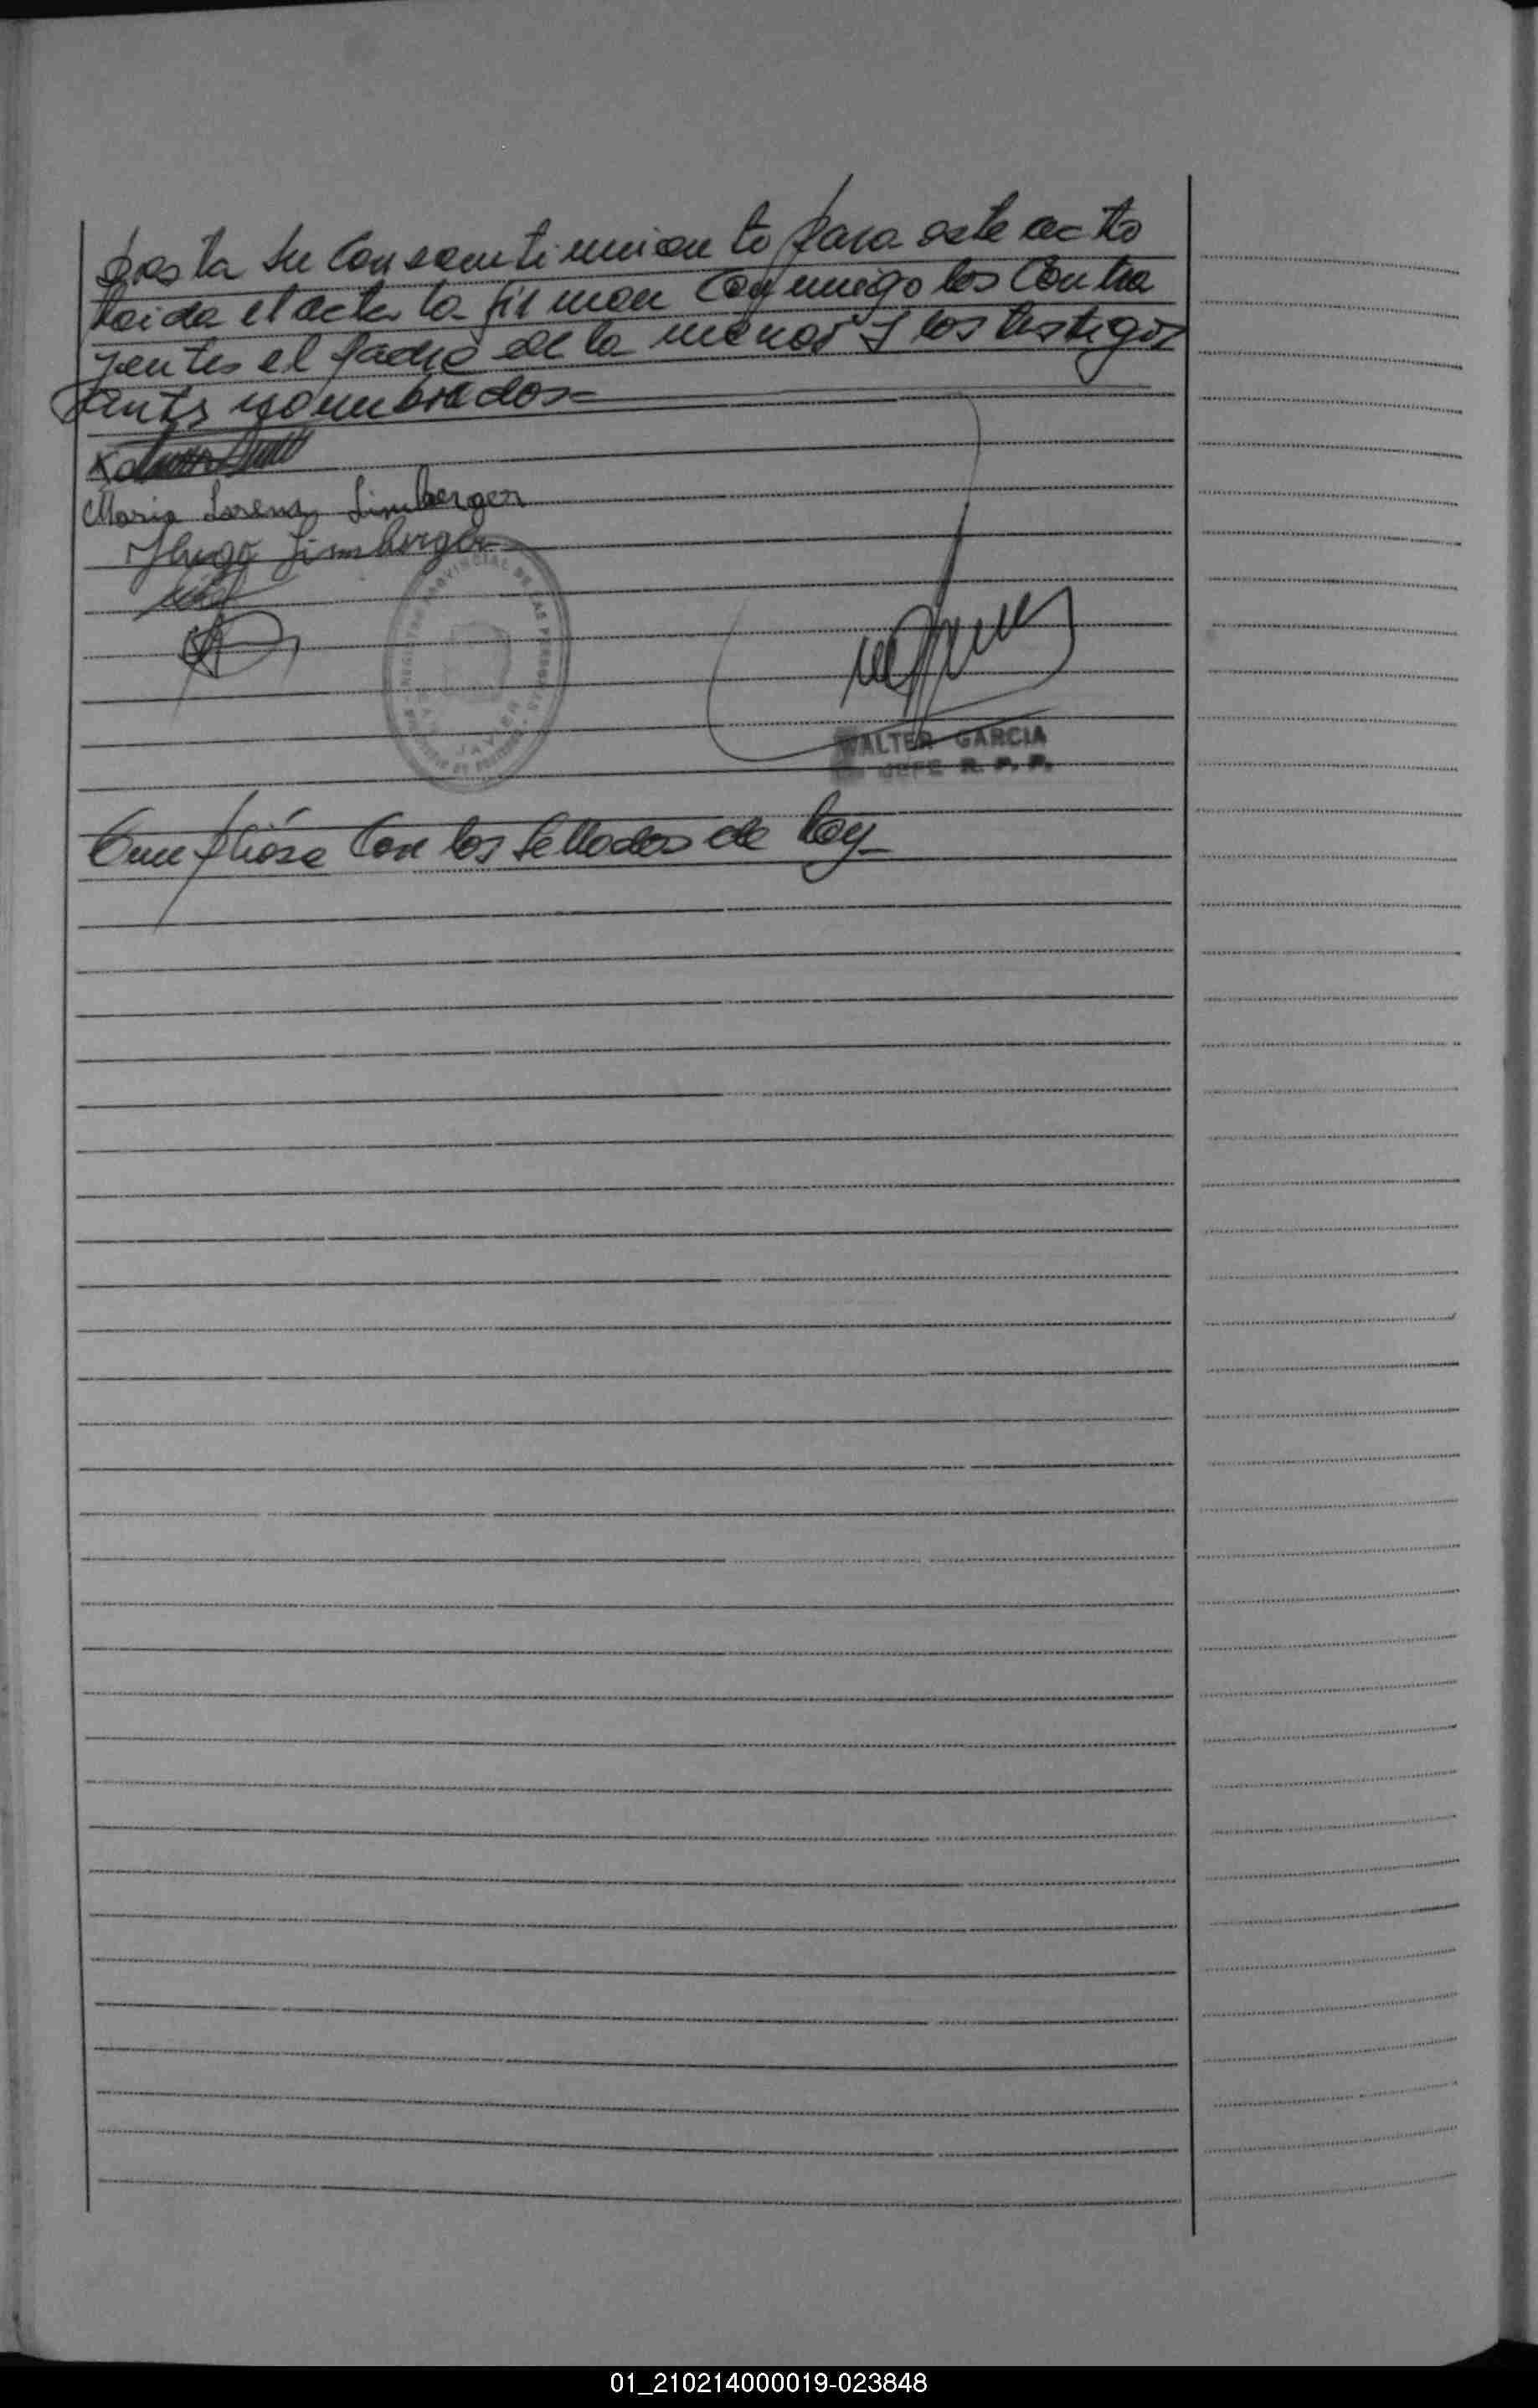 presta su consentimiento para este acto
Leida el acta la firman conmigo los contra
yentes el padre de la menor y los testigos
antes nombrados=
Maria Lorena Limberger
Hugo Limberger
REGISTRO PROVINCIAL DE LAS PERSONAS
JAVIER
WALTER GARCIA
JEFE R. P. P.
Cumplióse con los sellados de ley_
01_210214000019-023848